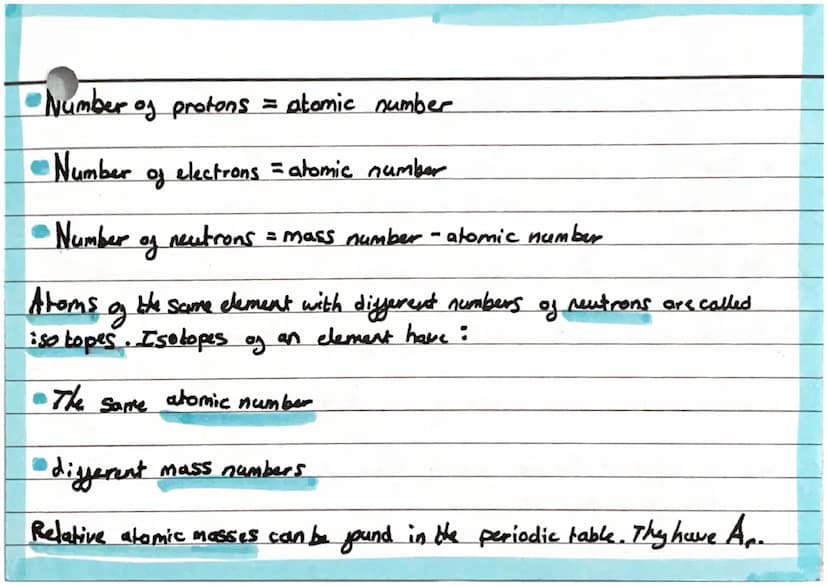 • Number of protons = atomic number
• Number of electrons = atomic number
• Number of neutrons = mass number - atomic number
Atoms of the same element with different numbers of neutrons are called
isotopes. Isotopes of an element have:
• The same atomic number
• different mass numbers
Relative atomic masses can be found in the periodic table. They have Ar.